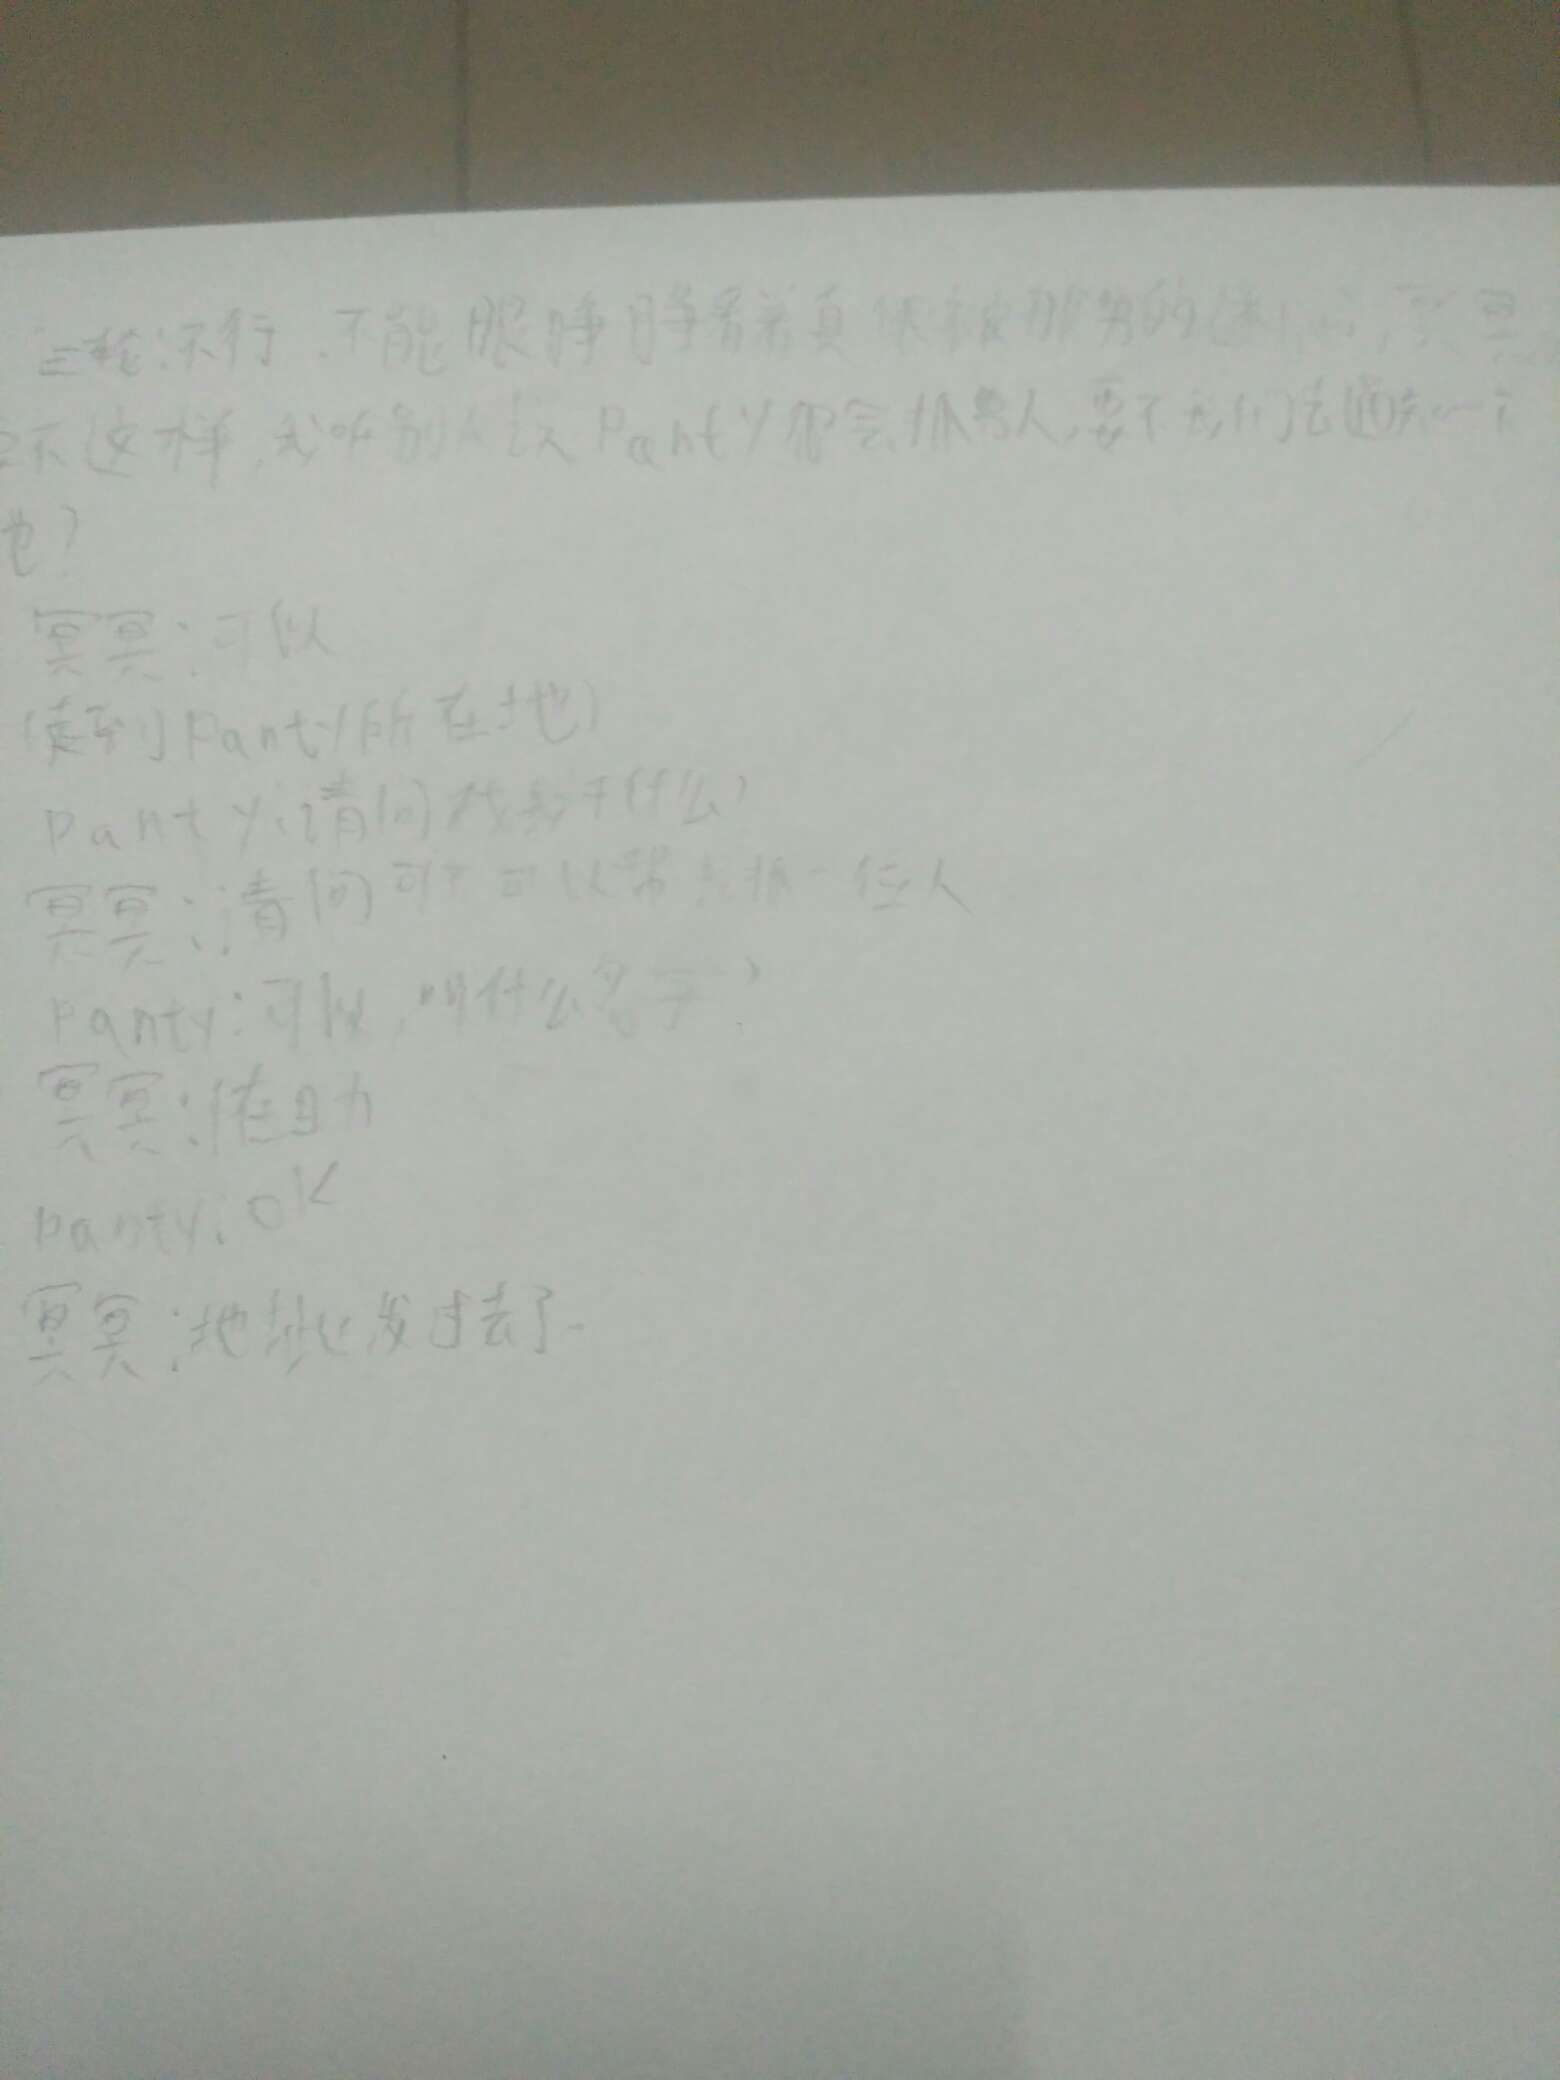 三轮:不行.不能眼睁睁看着真 被那男的迷 ,冥冥
要不这样,我听别人说Panty很会抓男人,要不我们去通知一下
她?
冥冥:可以
(走到Panty所在地)
panty:请问找我干什么?
冥冥:请问可不可以帮忙抓一位人
Panty:可以,叫什么名字?
冥冥:
panty:OK
冥冥:地址发过去了.